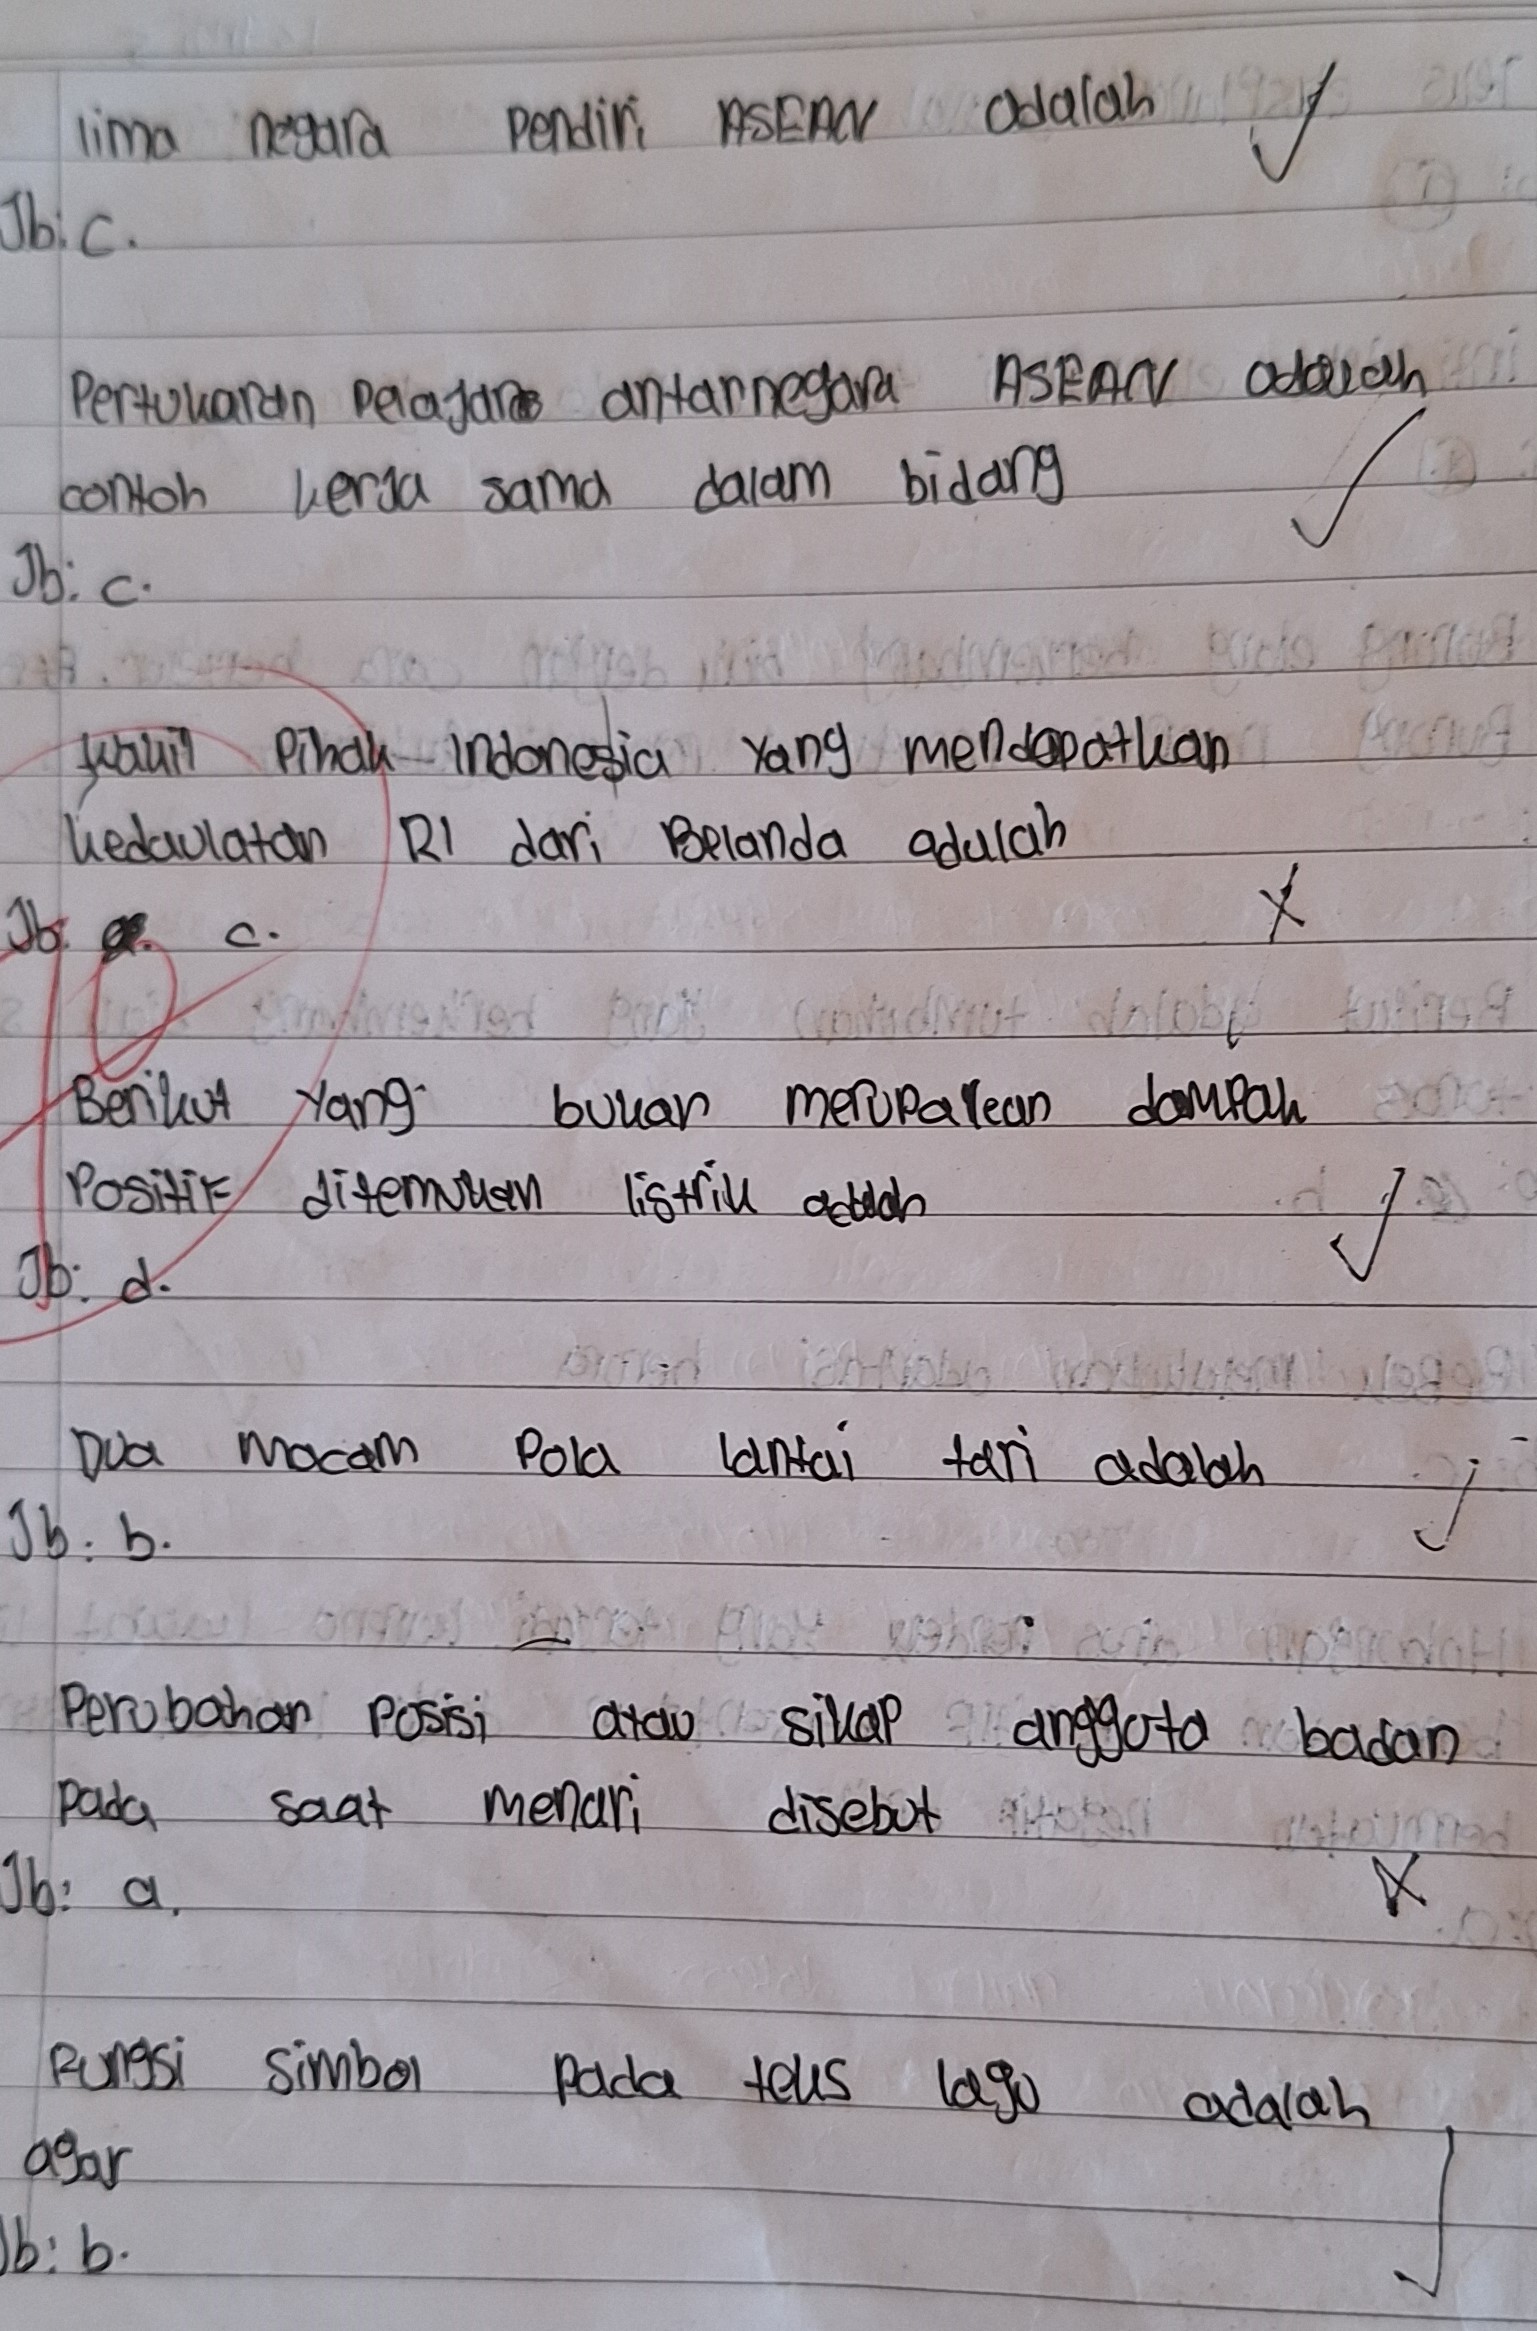 lima negara Pendiri ASEAN adalah
Jb: c.
Pertukaran Pelajar antarnegara ASEAN adalah
contoh kerja sama dalam bidang
Jb: c.
wakil Pihak Indonesia yang mendapatkan
kedaulatan RI dari Belanda adalah
Jb. c.
Berikut yang bukan merupakan dampak
Positif ditemukan listrik adalah
Jb: d.
Dua macam Pola lantai tari adalah
Jb: b.
Perubahan Posisi atau sikap anggota badan
Pada saat menari disebut
Jb: a.
Fungsi simbol Pada teks lagu adalah
agar
Jb: b.